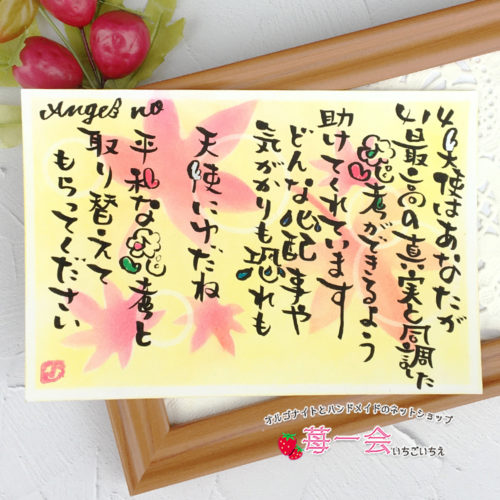 天使はあなたが
最高の真実と同調した
思考ができるよう
助けてくれています
どんな心配事や
気がかりも恐れも
天使にゆだね
平和な思考と
取り替えて
もらってください
Angel no
オルゴナイトとハンドメイドのネットショップ
苺一会 いちごいちえ